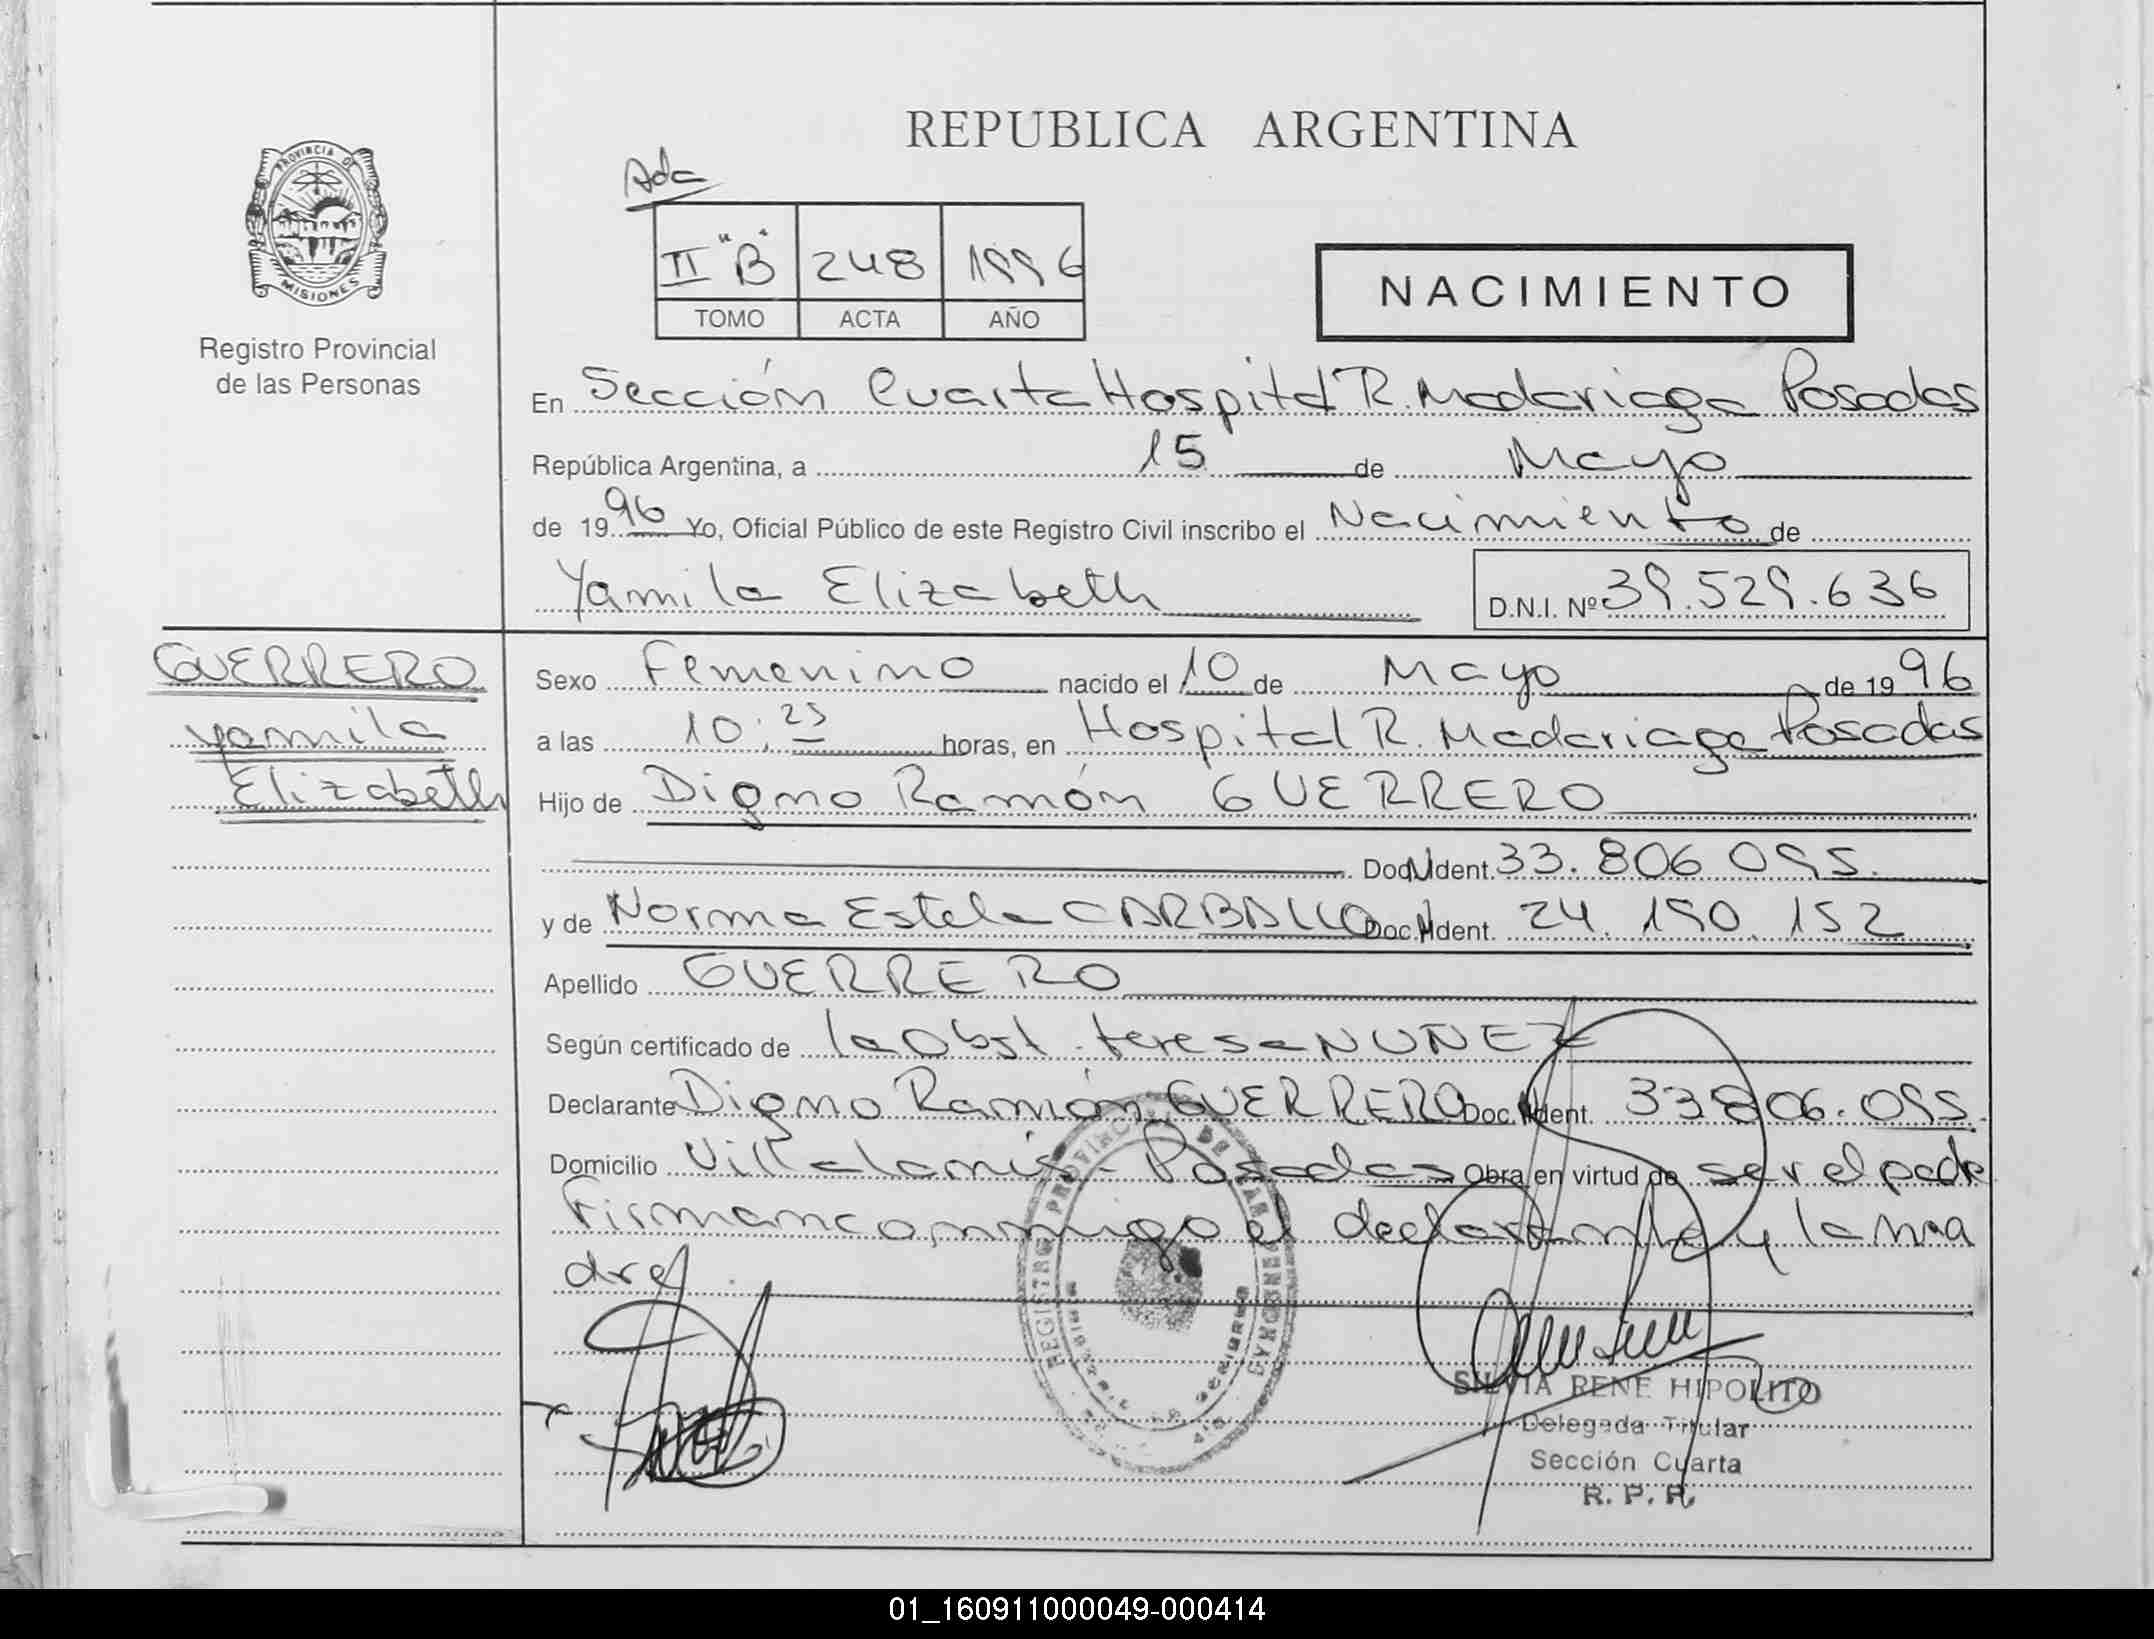 REPUBLICA ARGENTINA
PROVINCIA DE
MISIONES
Registro Provincial
de las Personas
Ada
II "B" 248 1996
TOMO ACTA AÑO
NACIMIENTO
En Sección Cuarta Hospital R. Madariaga Posadas
República Argentina, a 15 de Mayo
de 1996 Yo, Oficial Público de este Registro Civil inscribo el Nacimiento de
Yamila Elizabeth D.N.I. Nº 39.529.636
GUERRERO
Yamila
Elizabeth
Sexo Femenino nacido el 10 de Mayo de 1996
a las 10:25 horas, en Hospital R. Madariaga Posadas
Hijo de Digno Ramón GUERRERO
Doc.N.Ident. 33.806.095.
y de Norma Estela CARBALLO Doc.N.Ident. 24.190.152
Apellido GUERRERO
Según certificado de la Obst. teresa NUÑEZ
Declarante Digno Ramón GUERRERO Doc.N.Ident. 33.806.095.
Domicilio Villa lanús - Posadas Obra en virtud de ser el padre
Firman conmigo el declarante y la ma
dre
REGISTRO PROVINCIAL DE LAS PERSONAS
SILVIA RENE HIPOLITO
Delegada Titular
Sección Cuarta
R. P. P.
01_160911000049-000414